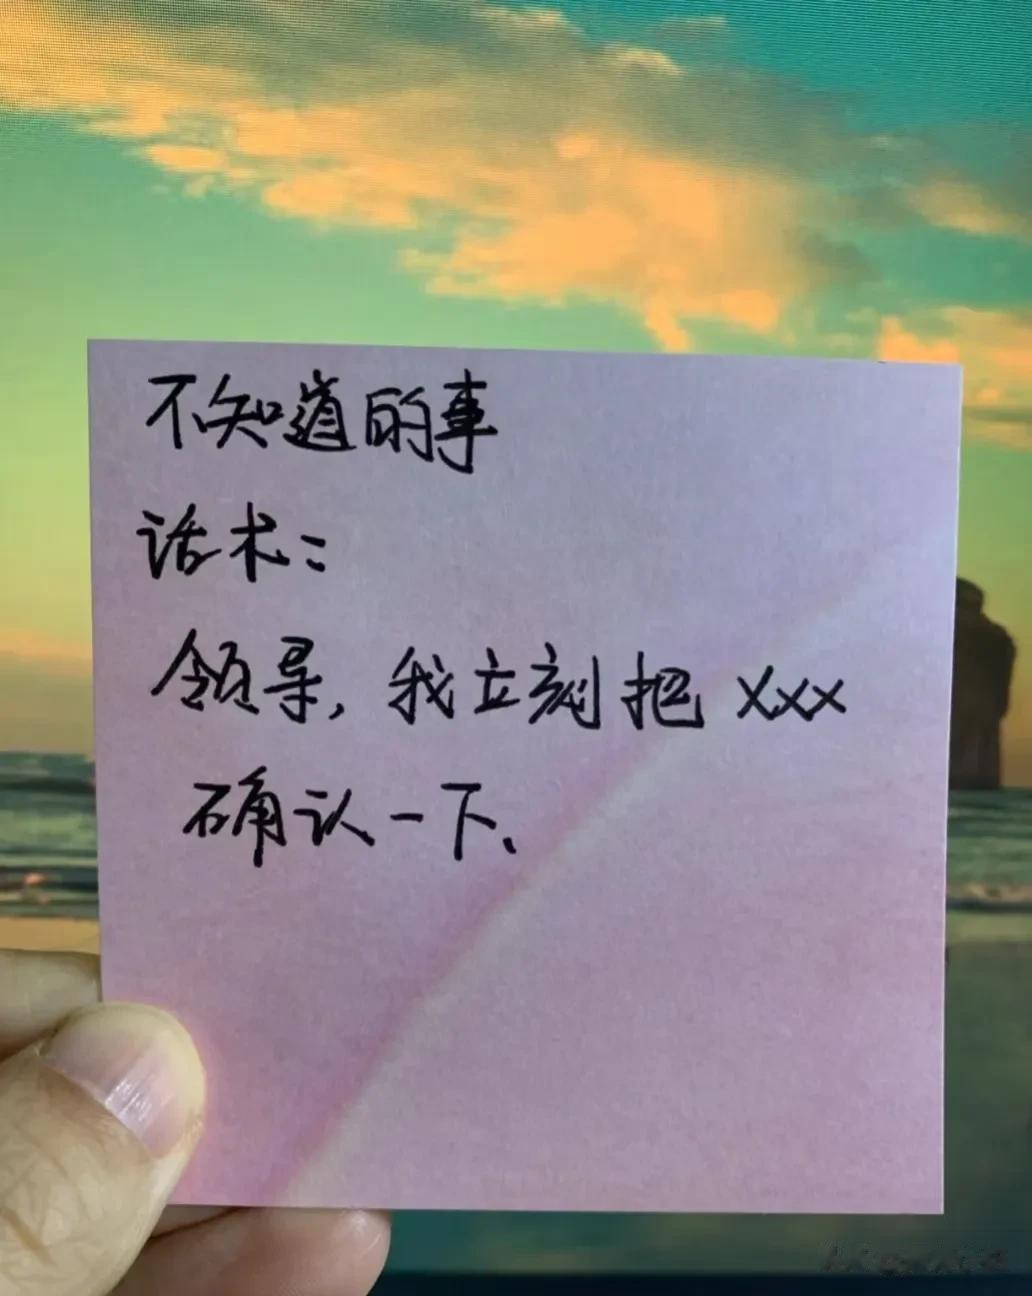 不知道的事
话术：
领导，我立刻把xxx
确认一下、